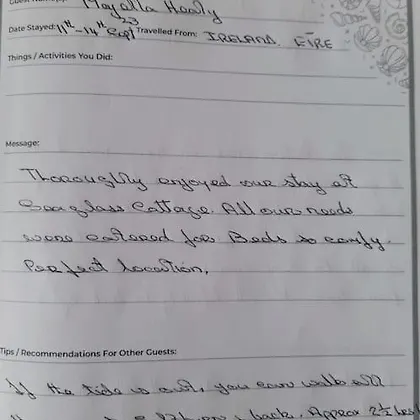 Majella Healy
Date Stayed: 11th - 14th Sept 23 Travelled From: IRELAND EIRE
Things / Activities You Did:
Message:
Thoroughly enjoyed our stay at
Seaglass Cottage. All our needs
were catered for Beds so comfy.
Perfect location.
Tips / Recommendations For Other Guests:
If the tide is out, you can walk all
back. Approx 2½